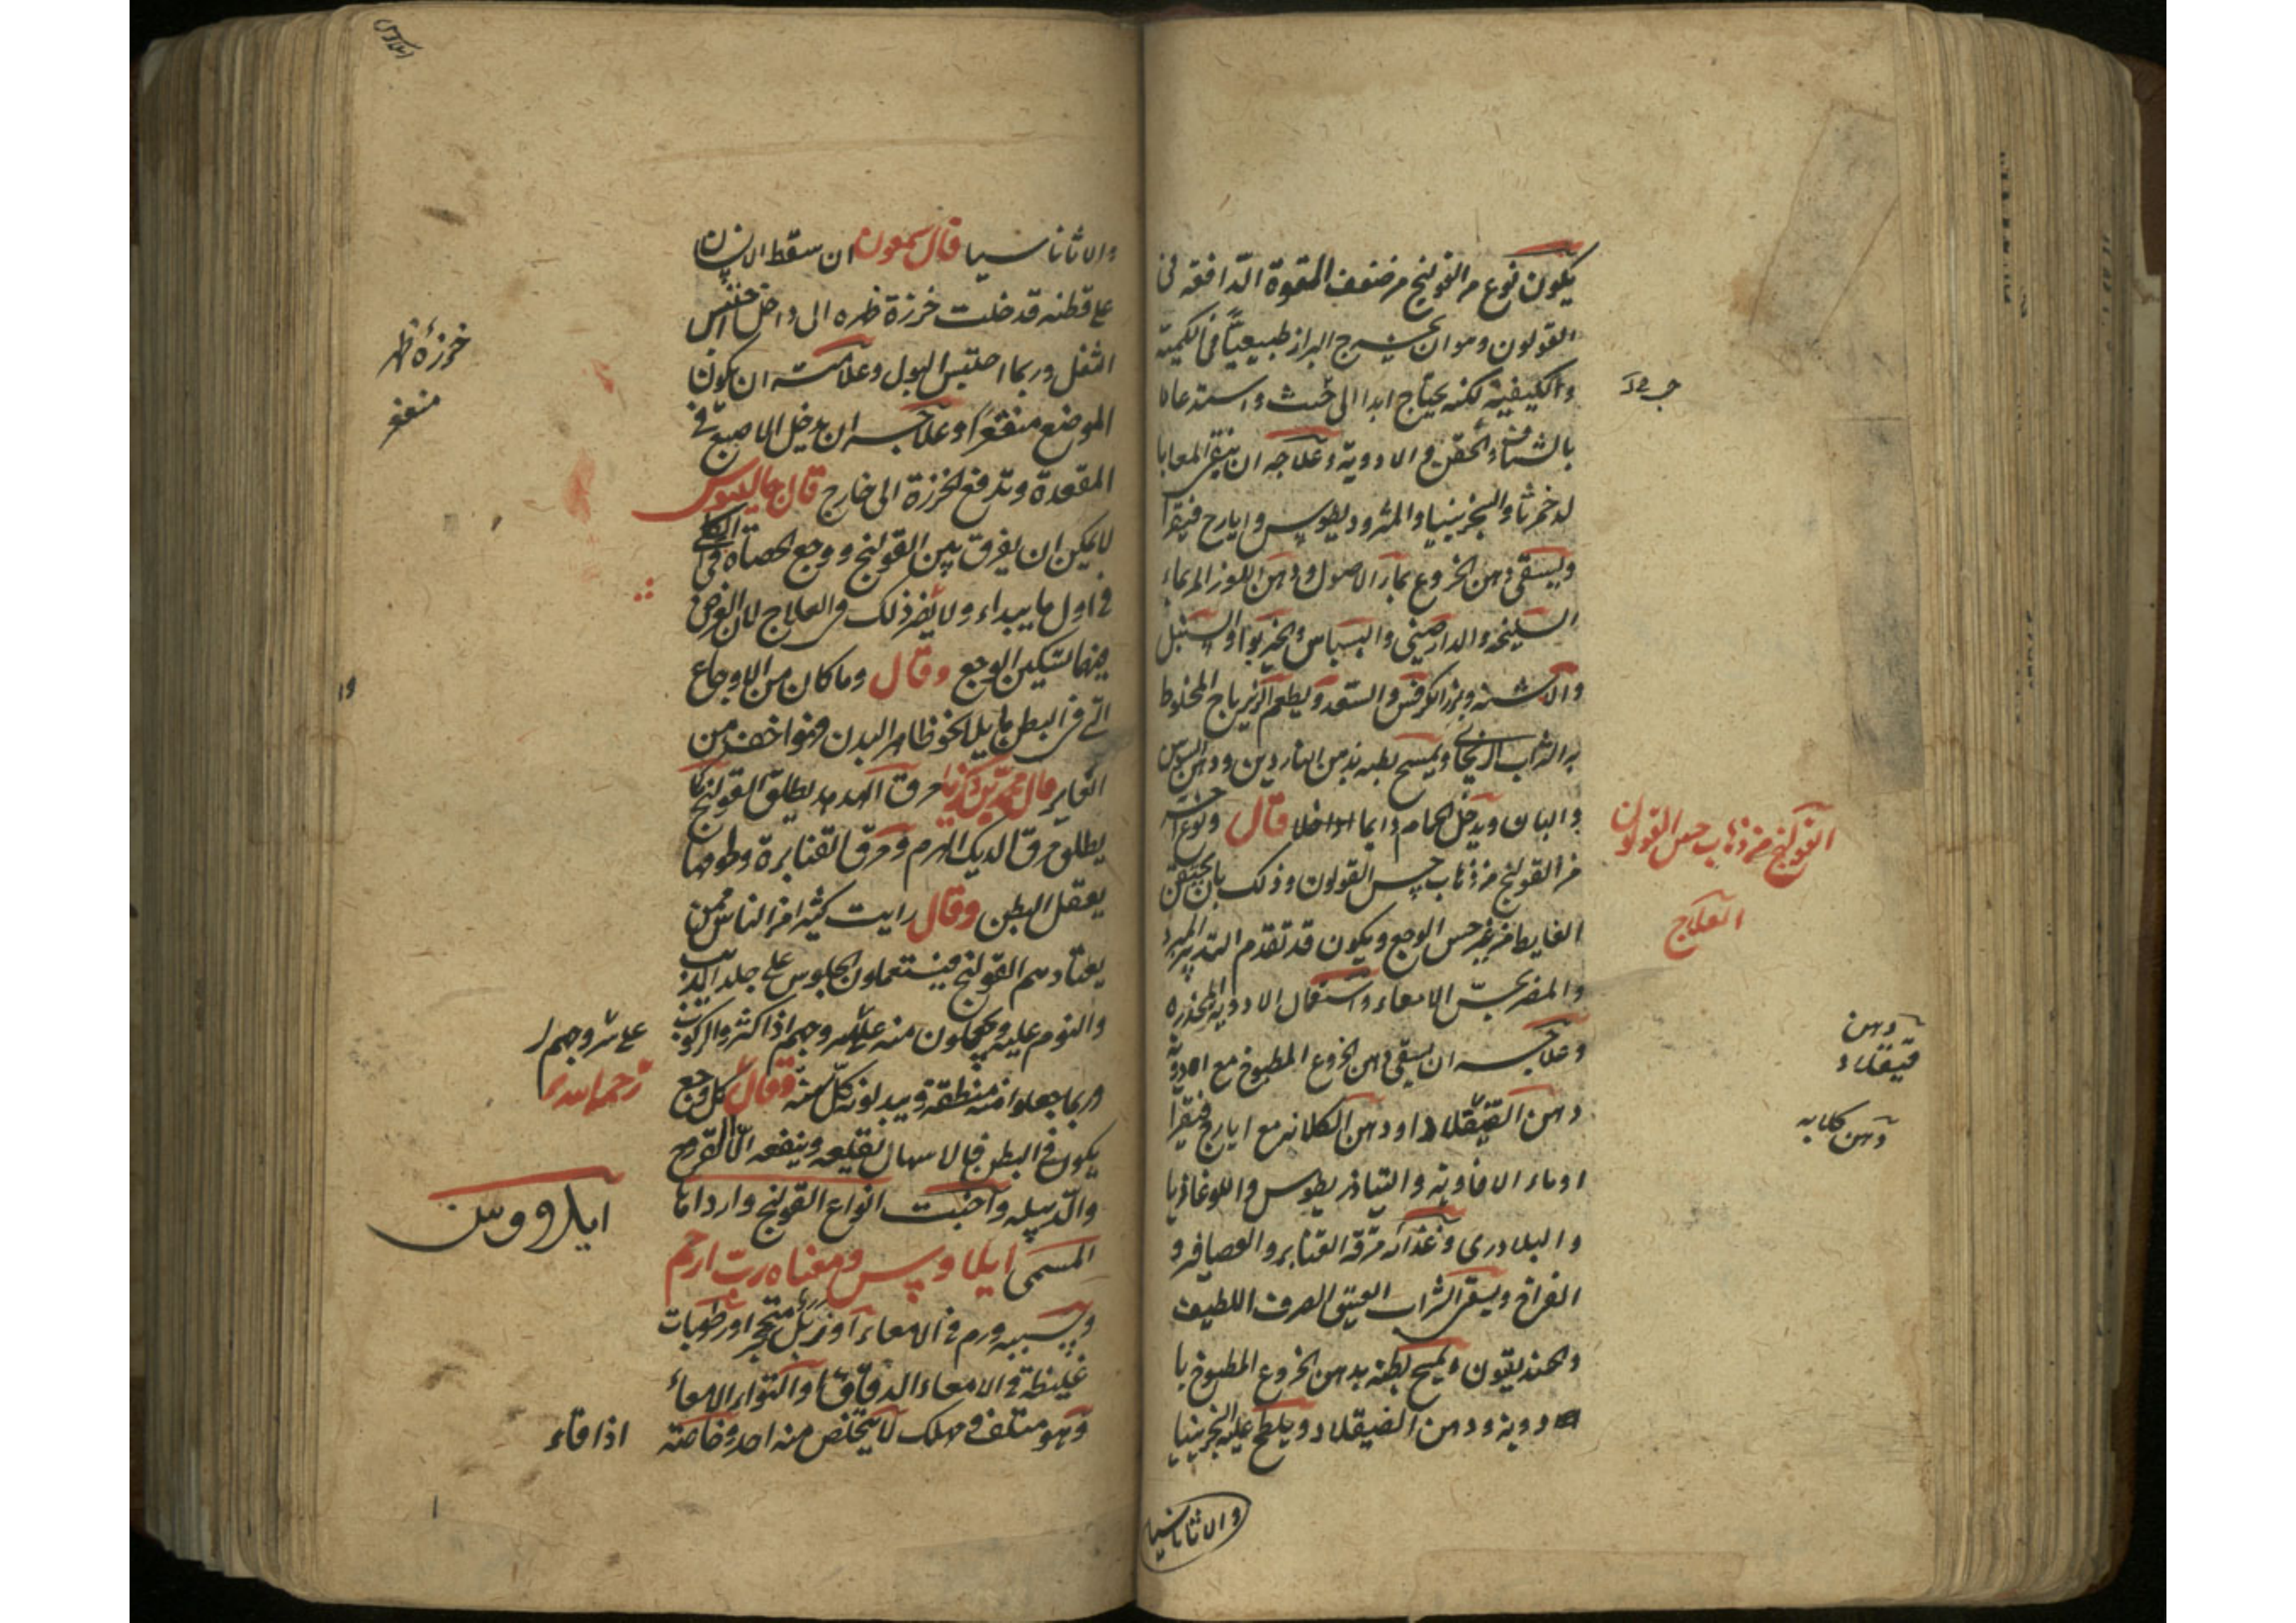 يكون نوع من القولنج من ضعف القوة الدافعة في
القولون وهو ان يخرج البراز طبيعيًا في الكمية
والكيفية لكنه يحتاج ابدا الى حث واستدعاء
بالشياف والحقن والادوية وعلاجه ان ينقى المعا بايا
لدخمرثا والسجزينيا والمثروديطوس وايارج فيقرا
ويسقى دهن الخروع بماء الاصول ودهن اللوز المر بماء
السليخة والدارصيني والبسباس والخيربوا والسنبل
والاشنه وبزر الكرفس والسعد ويطعم الزيرباج المخلوط
به الشراب الريحاني ويمسح بطنه بدهن الناردين ودهن السوسن
والبان ويدخل الحمام دايما قال ونوع اخر
من القولنج من ذهاب حس القولون وذلك بان يحتقن
الغايط من غير حس الوجع ويكون قد تقدم التدبير المبرد
والمضر بحس الامعاء واستعمال الادوية المخدرة
وعلاجه ان يسقى دهن الخروع المطبوخ مع الادوية
دهن القيقلاد او دهن الكلانه مع ايارج فيقرا
او ماء الافاويه والتياذريطوس واللوغاذيا
والبلادري وغذائه مرقة القنابر والعصافير و
الفراخ ويسقى الشراب العتيق الصرف اللطيف
والحنديقون ويمسح بطنه بدهن الخروع المطبوخ با
لادوية ودهن القيقلاد ويلطخ عليه السجزينيا
والاثاناسيا
القولنج من ذهاب حس القولون
العلاج
دهن
قيقلاد
دهن كلابه
والاثاناسيا قال سمعون ان سقط الانسان
على قطنه فدخلت خرزة ظهره الى داخل احتبس
الثفل وربما احتبس البول وعلامته ان يكون
الموضع منقعرًا وعلاجه ان يدخل الاصبع في
المقعدة وتدفع الخرزة الى خارج قال جالينوس
لا يمكن ان يفرق بين القولنج ووجع الحصاة في الكلى
في اول ما يبداء ولا يضر ذلك في العلاج لان الغرض
فيهما تسكين الوجع وقال وما كان من الاوجاع
التي في البطن مايلا نحو ظاهر البدن فهو اخف من
الغاير قال محمد بن زكريا مرق الهدهد يطلق القولنج كما
يطلق مرق الديك الهرم ومرق القنابرة ولحومها
يعقل البطن وقال رايت كثيرا من الناس ممن
يعتادهم القولنج فيستعملون الجلوس على جلد الذيب
والنوم عليه ويجعلون منه على سروجهم اذا اكثروا الركوب
وربما جعلوا منه منطقة ويبدلونه كل سنة وقال كل وجع
يكون في البطن فالاسهال يقلعه وينفعه الا القرح
والدبيله واخبث انواع القولنج وارداها
المسمى ايلاوس ومعناه رب ارحم
وسببه ورم في الامعاء او زبل متحجر او رطوبات
غليظة في الامعاء الدقاق او التواء الامعاء
وهو متلف مهلك لا يتخلص منه احد وخاصة
اذا قاء
خرزة ظهر
منقعر
على سروجهم
ايلاووس